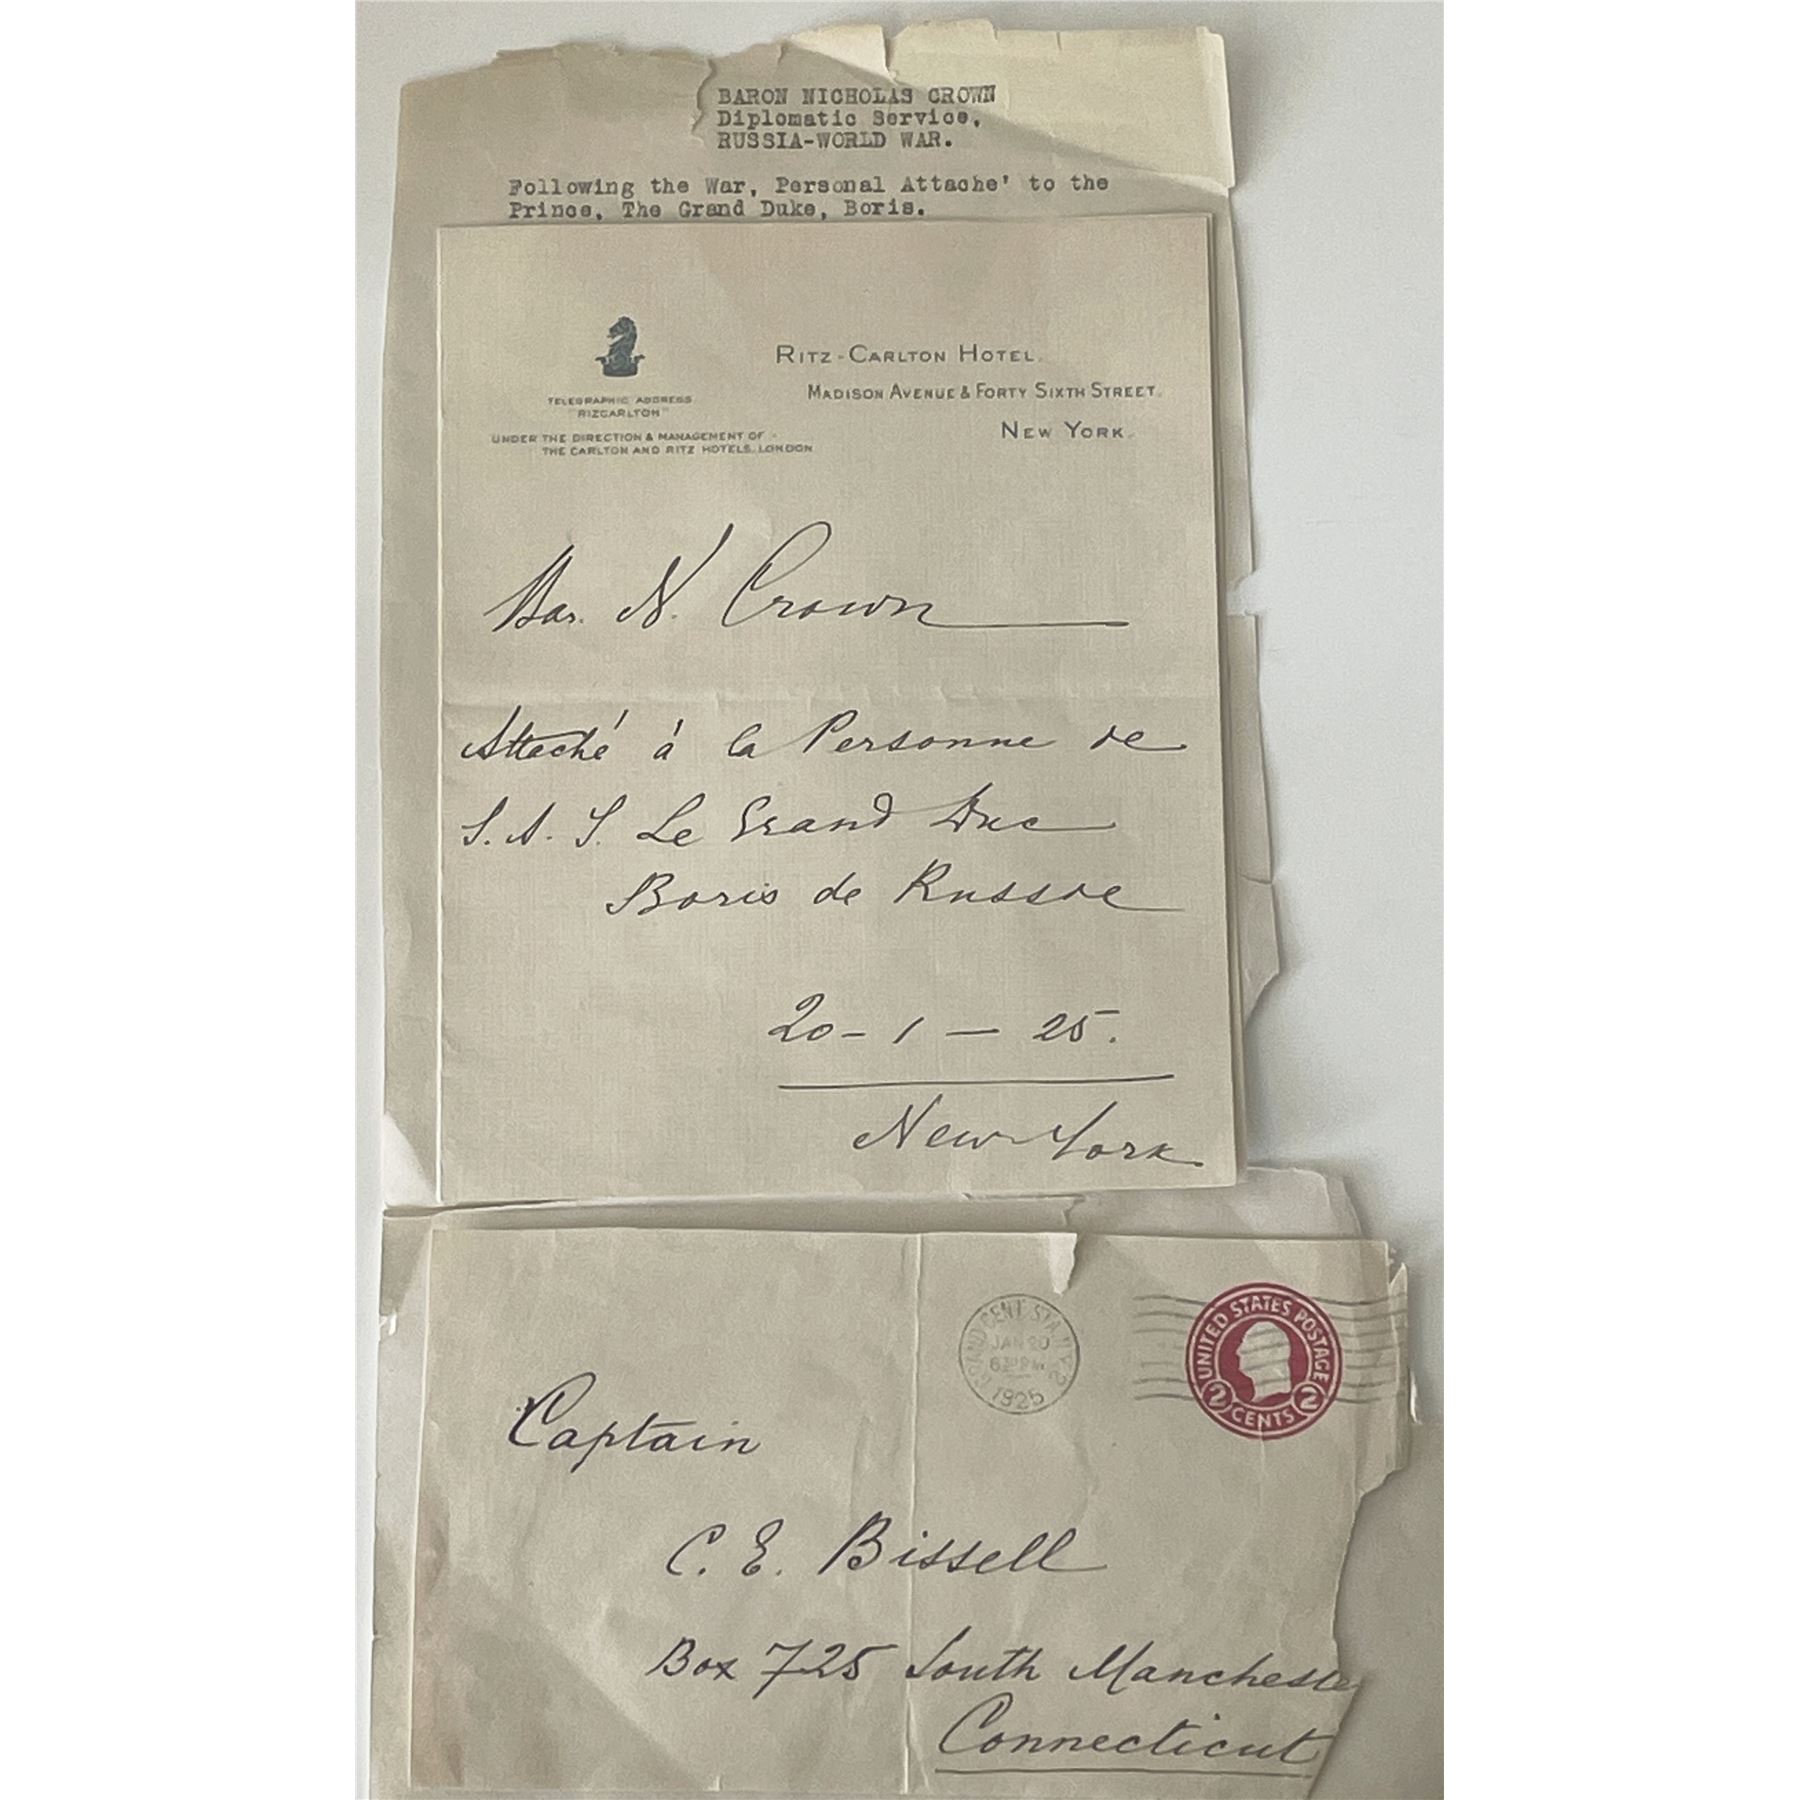 BARON NICHOLAS CROWN
Diplomatic Service,
RUSSIA-WORLD WAR.
Following the War, Personal Attache' to the
Prince, The Grand Duke, Boris.
TELEGRAPHIC ADDRESS
"RIZCARLTON"
UNDER THE DIRECTION & MANAGEMENT OF :-
THE CARLTON AND RITZ HOTELS, LONDON
RITZ-CARLTON HOTEL.
MADISON AVENUE & FORTY SIXTH STREET.
NEW YORK.
Bar. N. Crown
Attaché à la Personne de
S. A. I. Le Grand Duc
Boris de Russie
20-1-25.
New York
GRAND CENT. STA. N.Y.
JAN 20
6 30 PM
1925
UNITED STATES POSTAGE
2 CENTS 2
Captain
C. E. Bissell
Box 725 South Mancheste
Connecticut